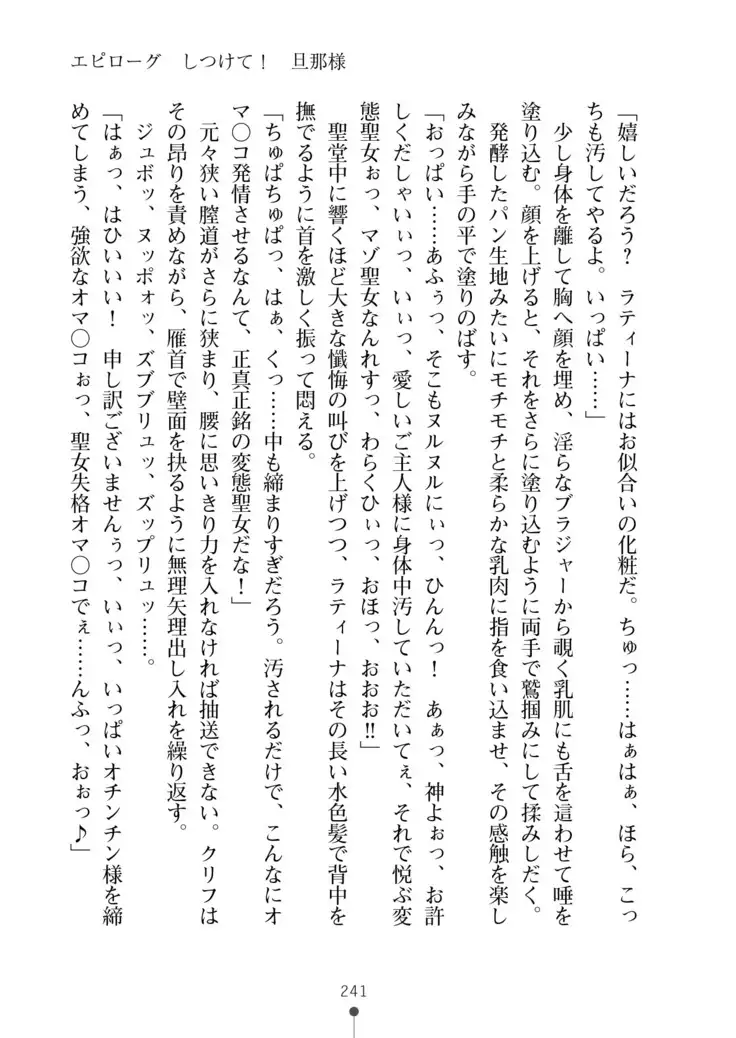 エピローグ　しつけて！　旦那様
「嬉しいだろう？　ラティーナにはお似合いの化粧だ。ちゅっ……はぁはぁ、ほら、こっ
ちも汚してやるよ。いっぱい……」
少し身体を離して胸へ顔を埋め、淫らなブラジャーから覗く乳肌にも舌を這わせて唾を
塗り込む。顔を上げると、それをさらに塗り込むように両手で鷲掴みにして揉みしだく。
発酵したパン生地みたいにモチモチと柔らかな乳肉に指を食い込ませ、その感触を楽し
みながら手の平で塗りのばす。
「おっぱい……あふぅっ、そこもヌルヌルにぃっ、ひんんっ！　あぁっ、神よぉっ、お許
しくだしゃいぃっ、いぃっ、愛しいご主人様に身体中汚していただいてぇ、それで悦ぶ変
態聖女ぉっ、マゾ聖女なんれすっ、わらくひぃっ、おほっ、おおお‼」
聖堂中に響くほど大きな懺悔の叫びを上げつつ、ラティーナはその長い水色髪で背中を
撫でるように首を激しく振って悶える。
「ちゅぱちゅぱっ、はぁ、くっ……中も締まりすぎだろう。汚されるだけで、こんなにオ
マ〇コ発情させるなんて、正真正銘の変態聖女だな！」
元々狭い膣道がさらに狭まり、腰に思いきり力を入れなければ抽送できない。クリフは
その昂りを責めながら、雁首で壁面を抉るように無理矢理出し入れを繰り返す。
ジュボッ、ヌッポォッ、ズブブリュッ、ズップリュッ……。
「はぁっ、はひいいい！　申し訳ございませんぅっ、いぃっ、いっぱいオチンチン様を締
めてしまう、強欲なオマ〇コぉっ、聖女失格オマ〇コでぇ……んふっ、おぉっ♪」
241